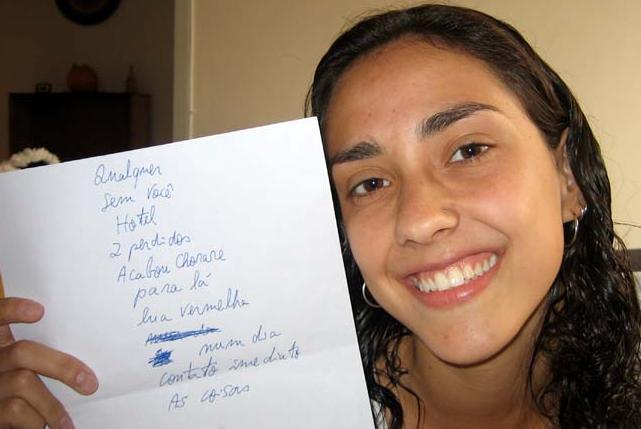 Qualquer
Sem você
Hotel
2 perdidos
Acabou Chorare
para lá
lua vermelha
num dia
contato imediato
As coisas